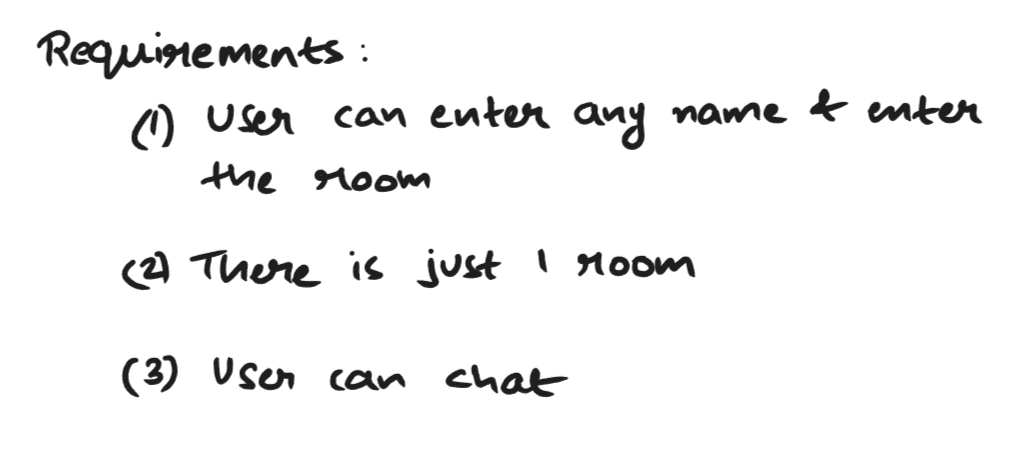 Requirements:
(1) User can enter any name & enter
the room
(2) There is just 1 room
(3) User can chat